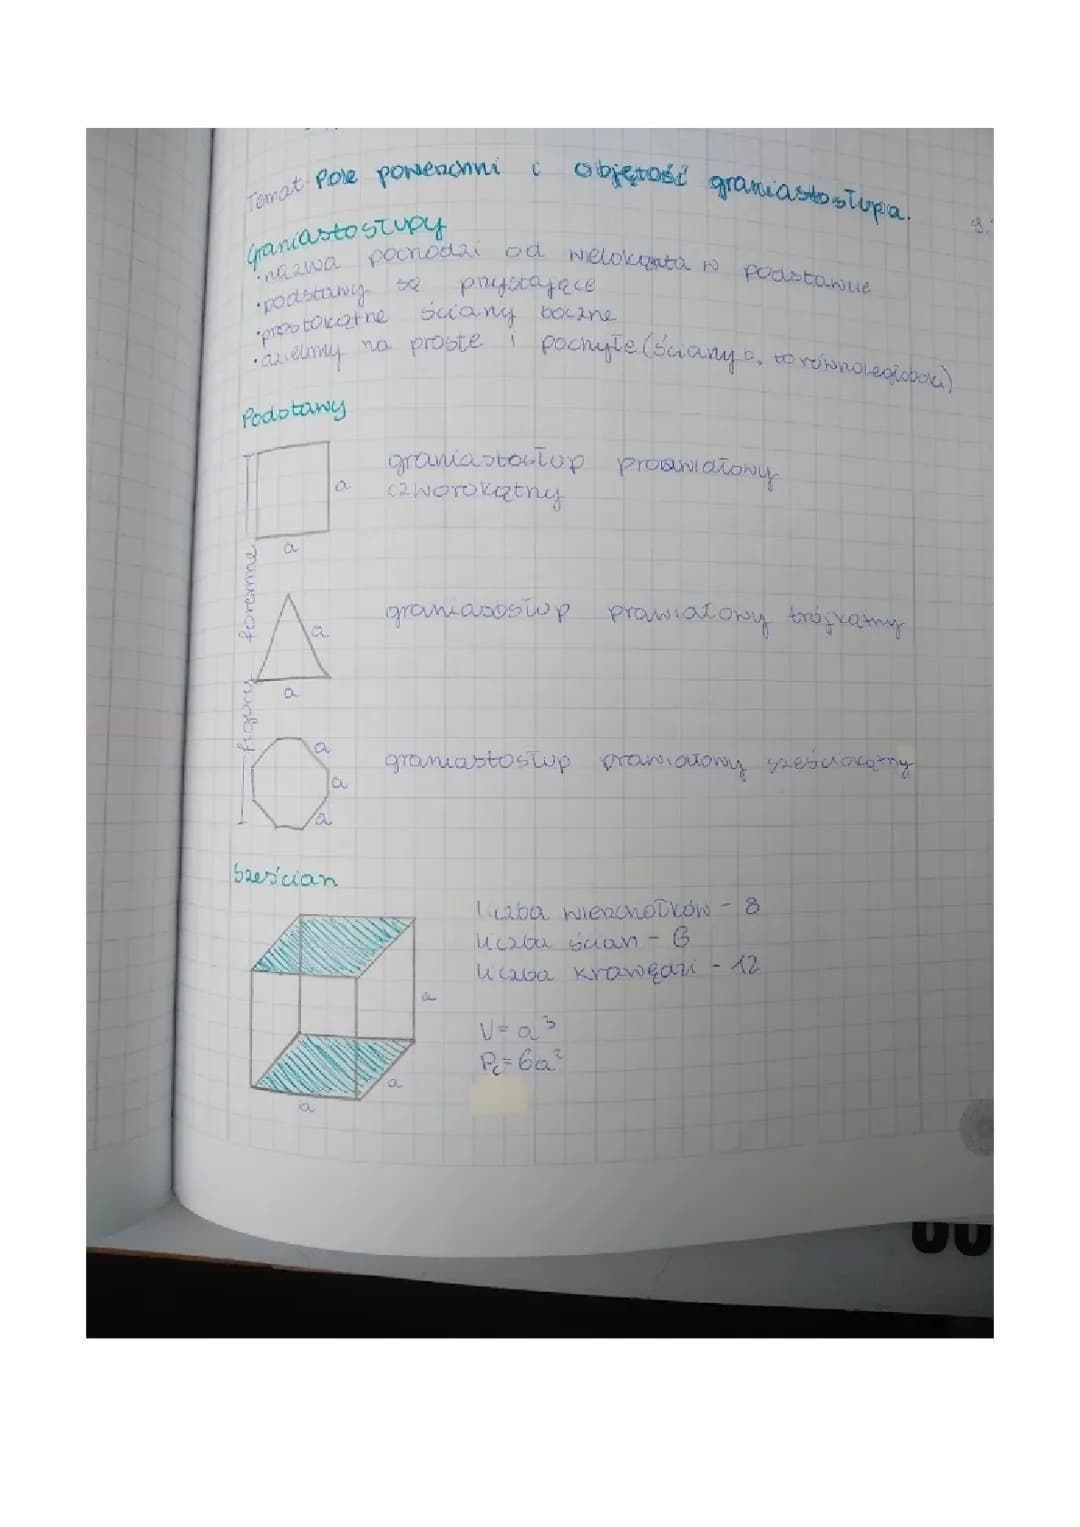 Temat: Pole powierzchni i objętość graniastosłupa.
Graniastosłupy
• nazwa pochodzi od wielokąta w podstawie
• podstawy są przystające
• prostokątne ściany boczne
• dzielimy na proste i pochyłe (ściany b. to równoległoboki)
Podstawy
graniastosłup prawidłowy
czworokątny
a
a
figury foremne
graniastosłup prawidłowy trójkątny
a
a
graniastosłup prawidłowy sześciokątny
a
a
a
Sześcian
liczba wierzchołków - 8
liczba ścian - 6
liczba krawędzi - 12
a
V = a³
Pc = 6a²
a
a